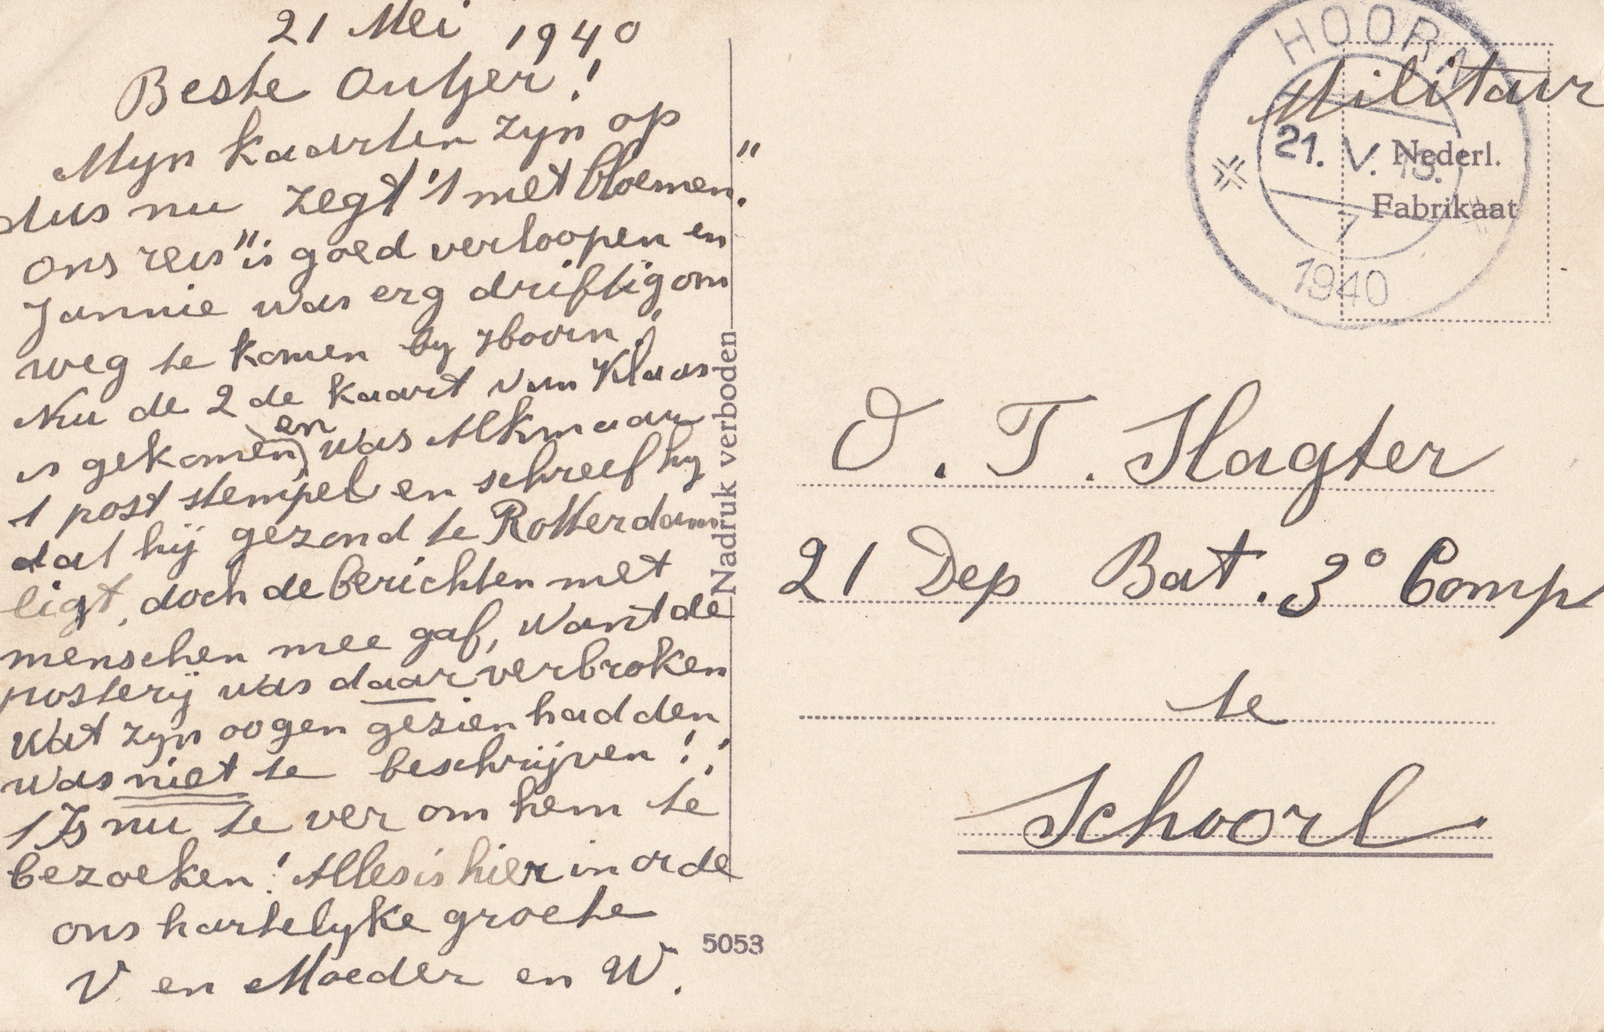 21 Mei 1940
Beste Outjer!
Myn kaarten zyn op
dus nu zegt 't met bloemen."
ons reis" is goed verloopen en
Jannie was erg driftig om
weg te komen by Hoorn!
Nu de 2de kaart van Klaas
is gekomen, en was Alkmaar
't post stempel en schreef hy
dat hij gezond te Rotterdam
ligt, doch de berichten met
menschen mee gaf, want de
posterij was daar verbroken
Wat zyn oogen gezien hadden
was niet te beschrijven!!
't Is nu te ver om hem te
bezoeken! Alles is hier in orde
ons hartelyke groete
V en Moeder en W.
Nadruk verboden
5053
HOORN
21. V. 13.
7
1940
Militair
Nederl.
Fabrikaat
O. T. Slagter
21 Dep Bat. 3° Comp
te
Schoorl.